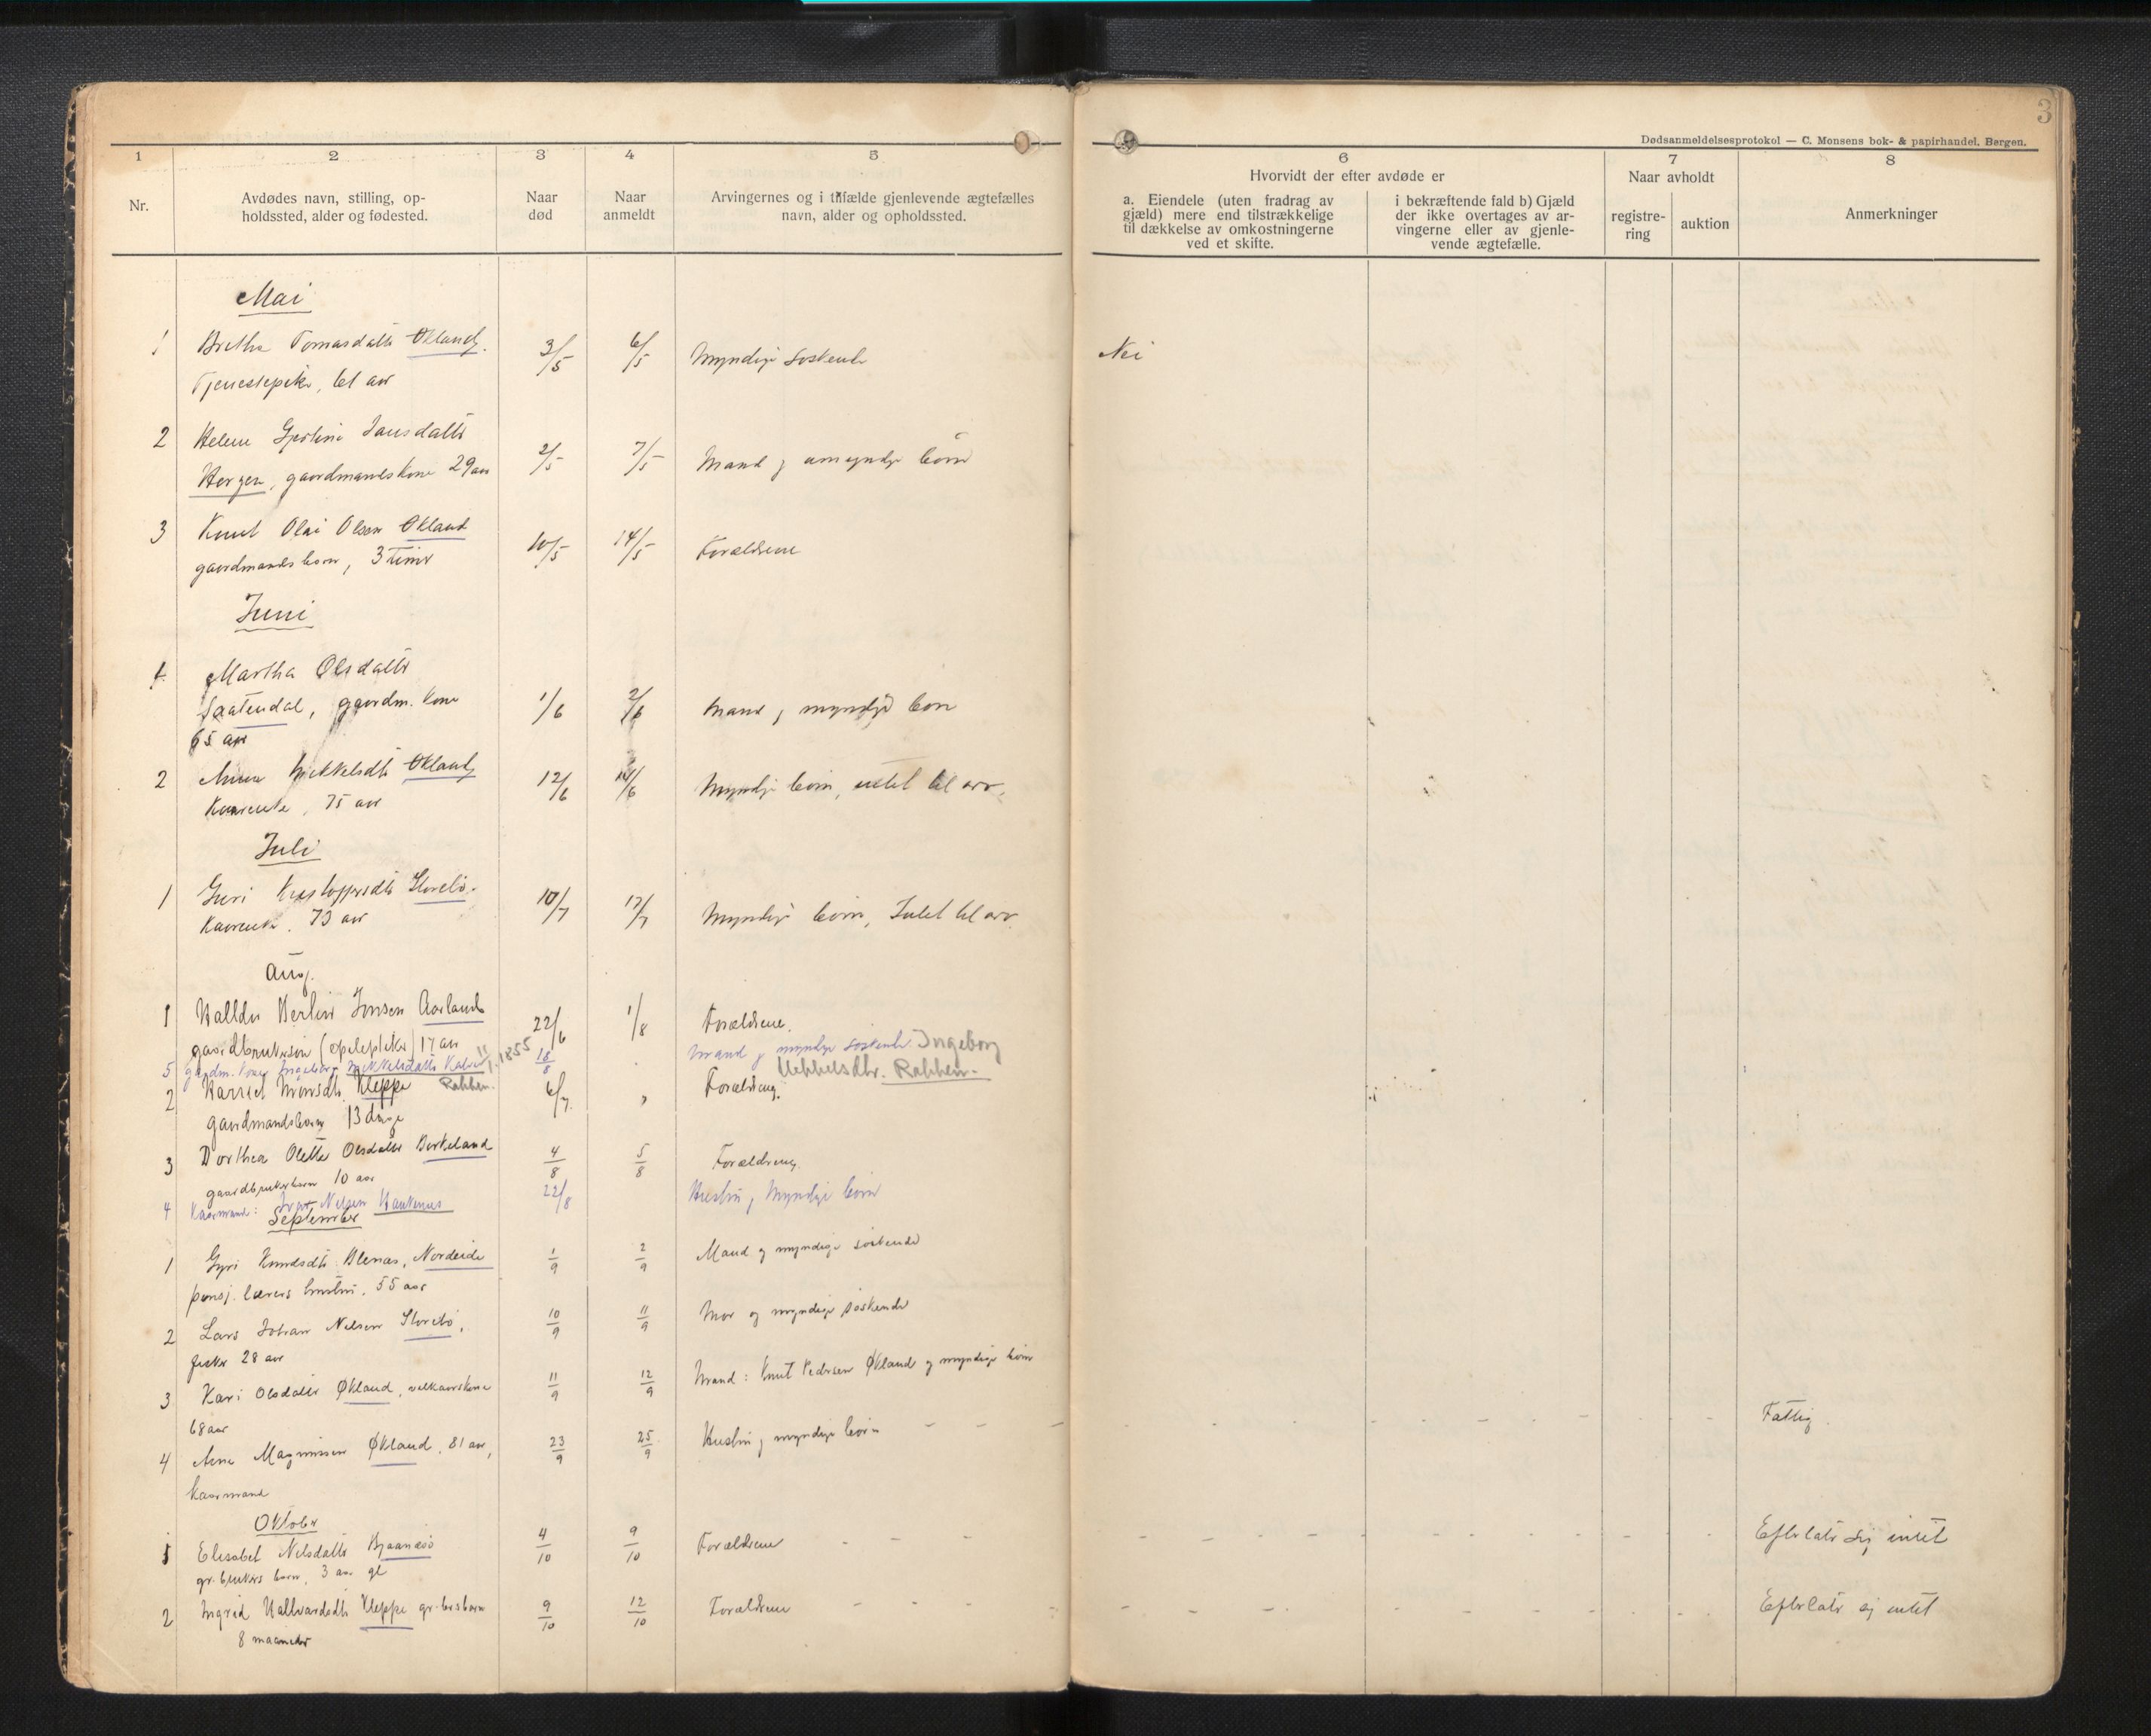 3
Dødsanmeldelsesprotokol — C. Monsens bok- & papirhandel. Bergen.
1 2 3 4 5 6 7 8
Nr.
Avdødes navn, stilling, op-
holdssted, alder og fødested.
Naar
død
Naar
anmeldt
Arvingernes og i tilfælde gjenlevende ægtefælles
navn, alder og opholdssted.
Hvorvidt der efter avdøde er
a. Eiendele (uten fradrag av
gjæld) mere end tilstrækkelige
til dækkelse av omkostningerne
ved et skifte.
i bekræftende fald b) Gjæld
der ikke overtages av ar-
vingerne eller av gjenle-
vende ægtefælle.
Naar avholdt
registre-
ring
auktion
Anmerkninger
Mai
1 Bretha Tomasdattr Økland, 3/5 6/5 Myndige søskende Nei
Tjenestepike, 61 aar
2 Helene Jansdattr
Horgen, gaardmandskone 29 aar 2/5 7/5 Mand og umyndige børn
3 Knut Olai Olsen Økland 10/5 14/5 Forældrene
gaardmandsbarn, 3 timer
Juni
1 Martha Olsdattr
gaardm. kone 1/6 2/6 Mand og myndige børn
65 aar
2 Anna Mikkelsdtr Økland 12/6 /6 Myndige børn, intet til arv.
Kaarenke, 75 aar
Juli
1 Guri Storebø. 10/7 17/7 Myndige børn, Intet til arv.
Kaarenke. 73 aar
Aug.
1 Halldor Jonsen 22/6 1/8 Forældrene.
gaardbrukersøn (epileptiker) 17 aar
5 gaardm. kone Ingeborg Mikkelsdattr 11/1 1855 18/8 Mand og myndige søskende. Ingeborg
Rabben. Mikkelsdtr. Rabben.
2 Harriet Monsdtr. Kleppe 6/7. " Forældrene.
gaardmandsbarn 13 dage
3 Dorthea Olette Olsdattr Birkeland 4/8 5/8 Forældrene.
gaardbrukerbarn 10 aar
4 Kaarmand: Ivar Nilsen Haukenes 22/8 Hustru og Myndige børn
September
1 Gyri Knudsdtr. Blenæs, Nordeide 1/9 2/9 Mand og myndige søskende
pensj. lærers hustru. 55 aar
2 Lars Johan Nilsen Storebø, 10/9 11/9 Mor og myndige søskende
fisker 28 aar
3 Kari Olsdattr Økland, 11/9 12/9 Mand: Knut Pedersen Økland og myndige børn
68 aar
4 Arne Magnussen Økland. 81 aar, 23/9 25/9 Hustru og myndige børn - - - Fattig.
Kaarmand
Oktober
1 Elisabet Nilsdattr Bjaanesø 4/10 9/10 Forældrene - - - Efterlater sig intet
gr. brukers barn, 3 aar gl
2 Ingrid Hallvardsdtr Kleppe gr. brs barn 9/10 12/10 Forældrene - - - Efterlater sig intet
8 maaneder